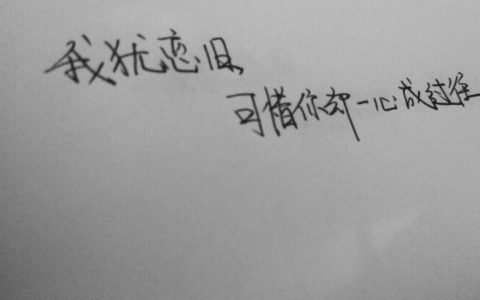 我犹恋旧,
可惜你却一心成过往